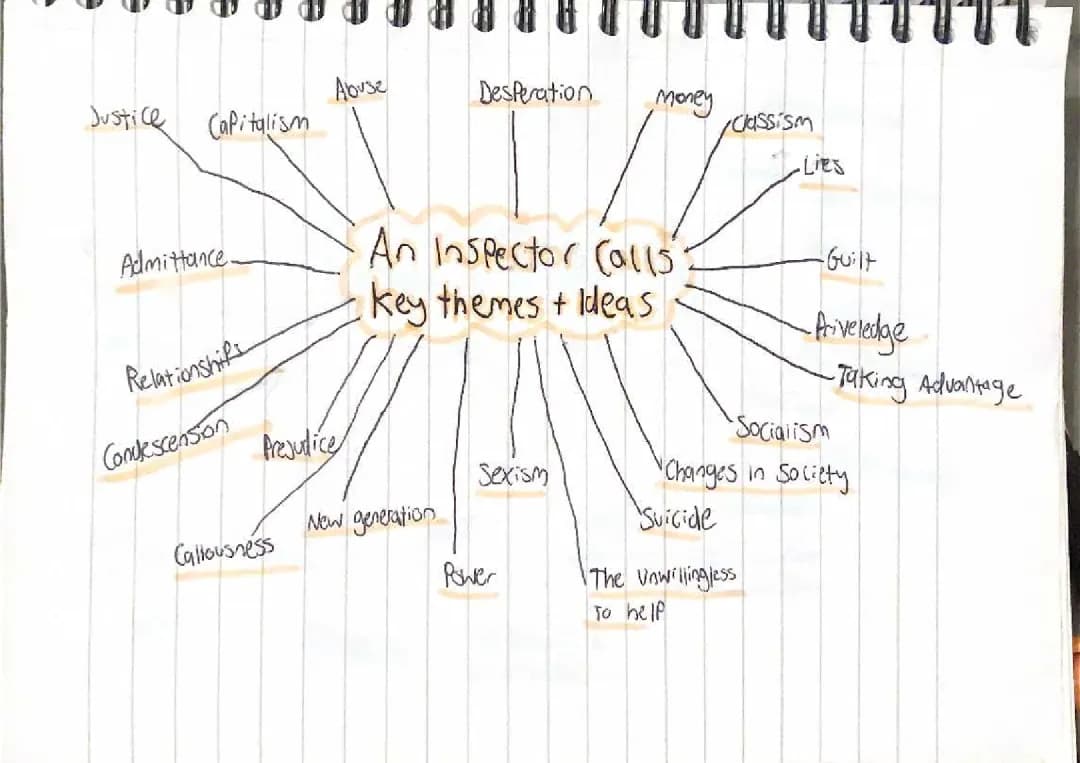 Abuse
Desperation
Money
Justice
Capitalism
Classism
Lies
An Inspector Calls
key themes + Ideas
Admittance
Guilt
Priveledge
Relationships
Taking Advantage
Condescension
Prejudice
Socialism
Sexism
Changes in Society
New generation
Suicide
Callousness
Power
The Unwillingless
To help